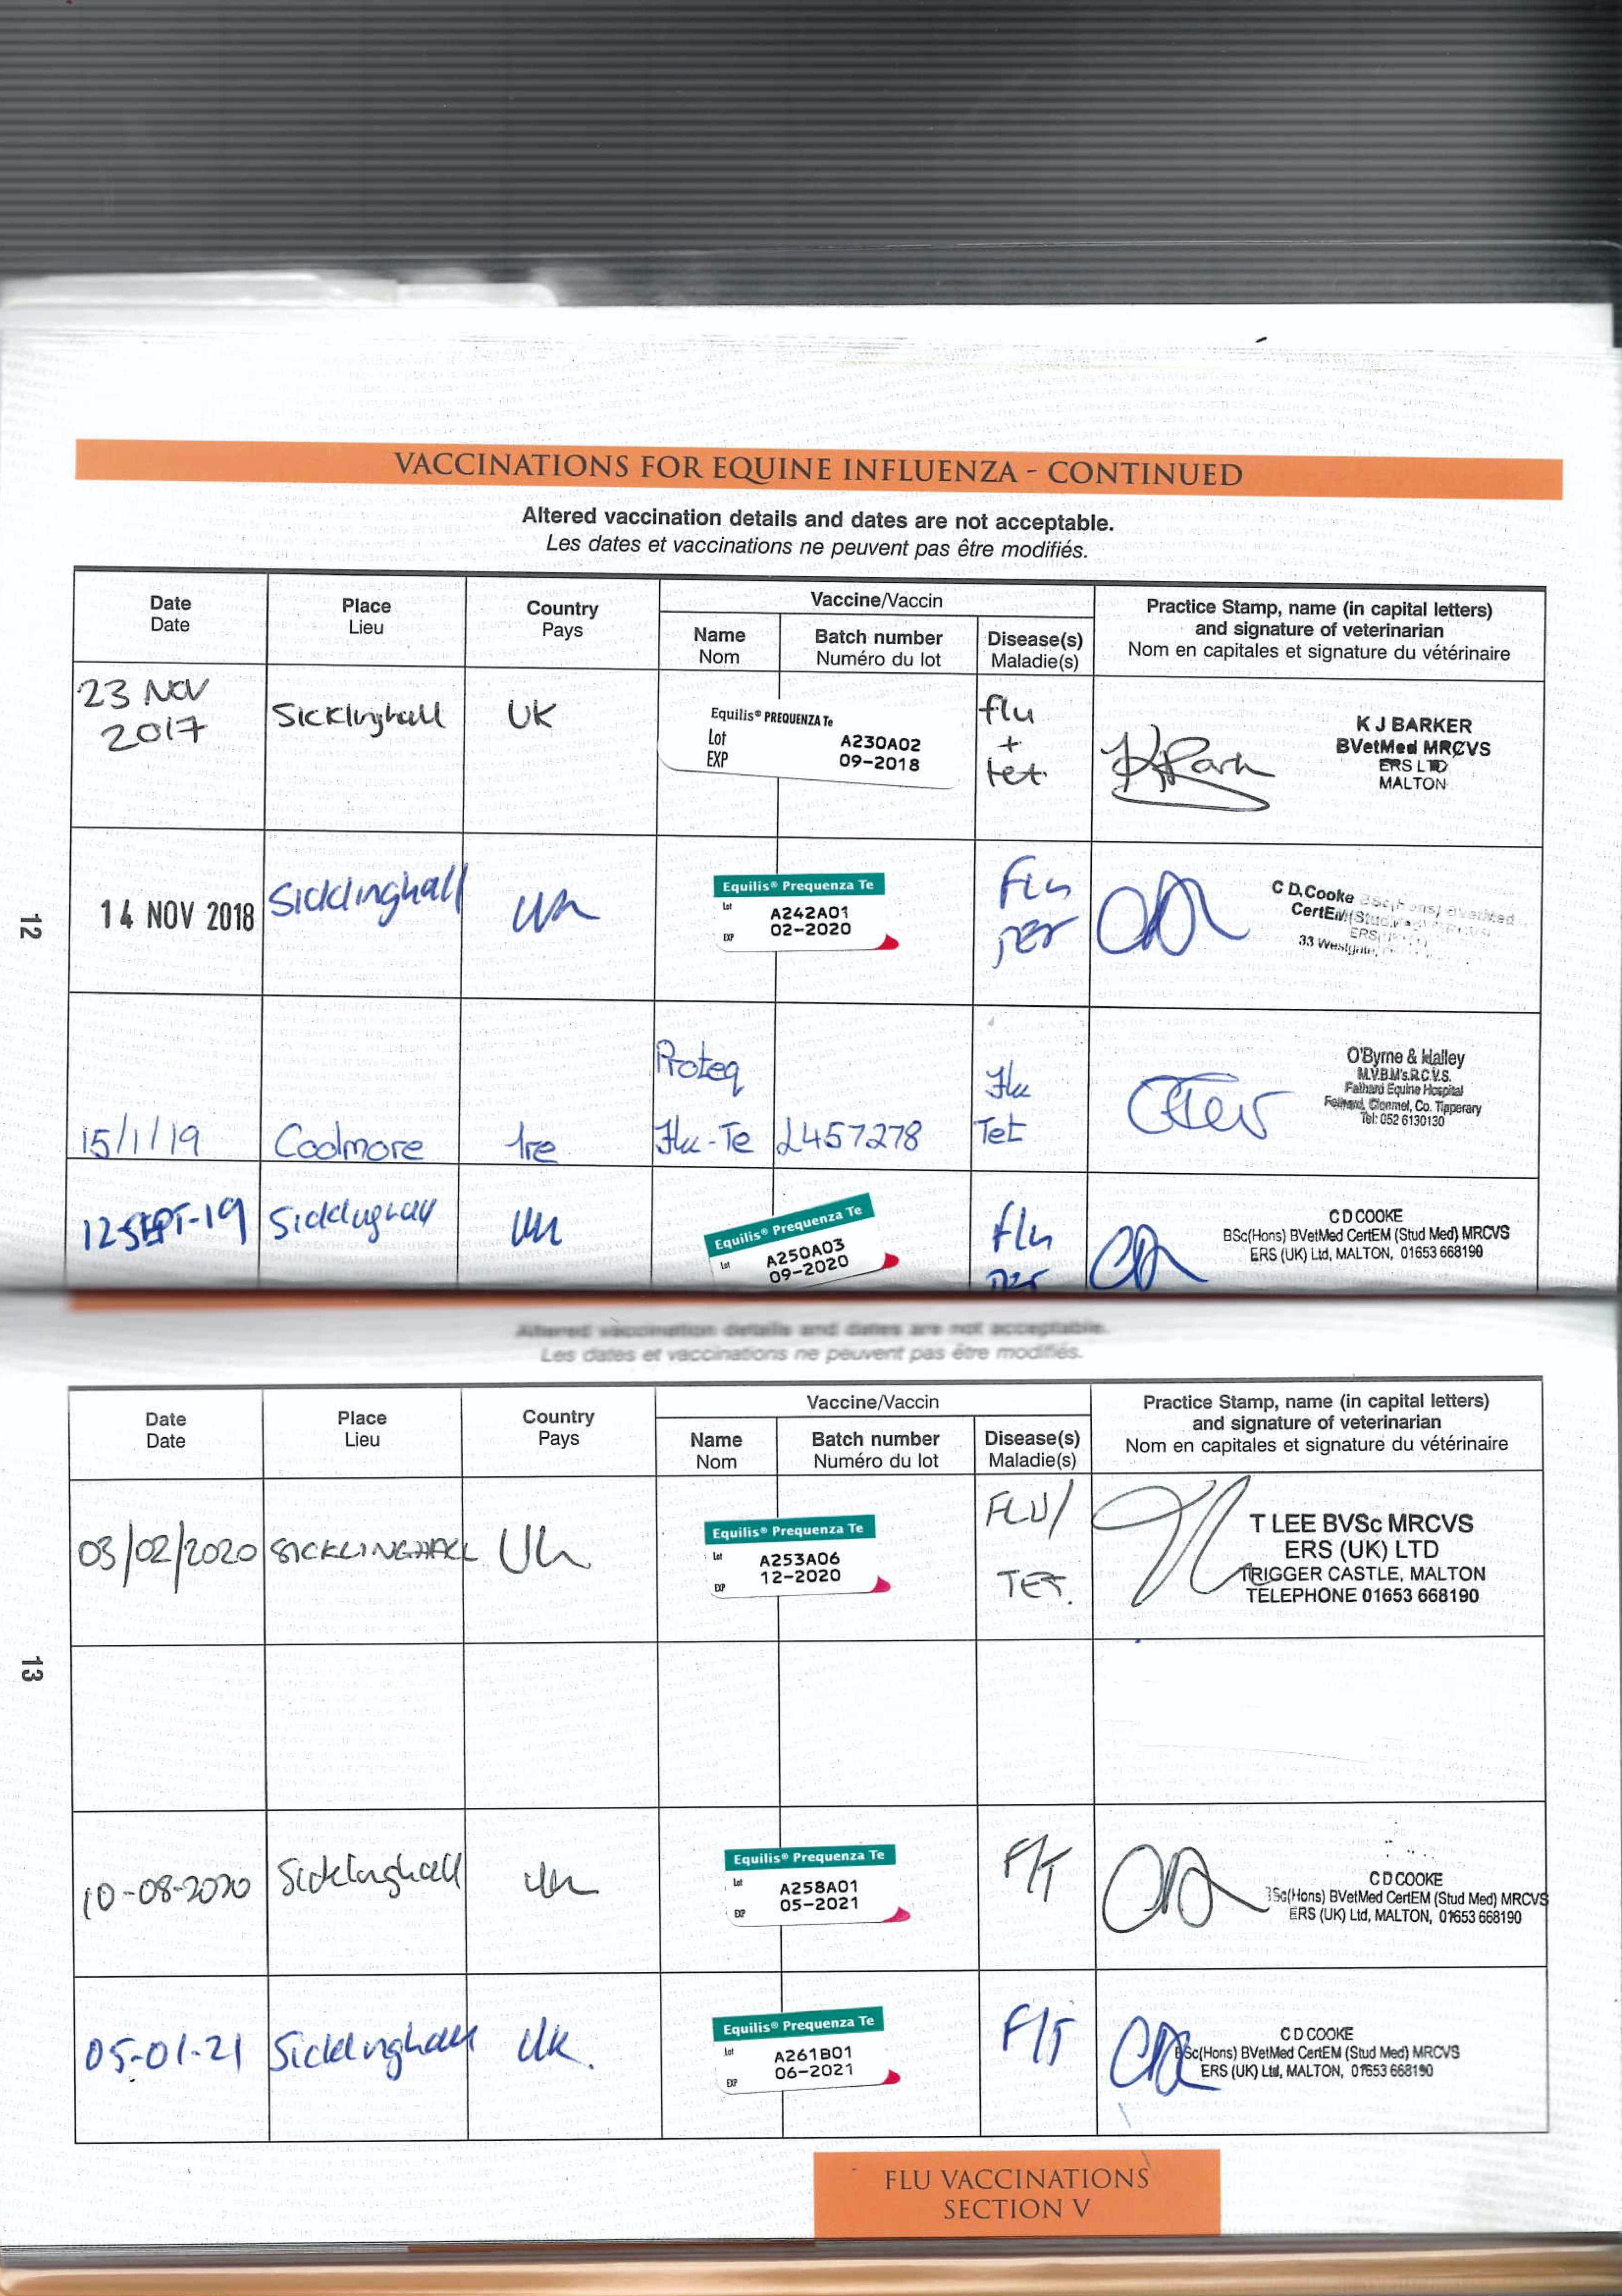 VACCINATIONS FOR EQUINE INFLUENZA - CONTINUED
Altered vaccination details and dates are not acceptable.
Les dates et vaccinations ne peuvent pas être modifiés.
Date Place Country Vaccine/Vaccin Practice Stamp, name (in capital letters)
Date Lieu Pays and signature of veterinarian
Name Batch number Disease(s) Nom en capitales et signature du vétérinaire
Nom Numéro du lot Maladie(s)
23 NOV
2017
Sicklinghall UK
Equilis® PREQUENZA Te
Lot A230A02
EXP 09-2018
flu
+
tet.
K J BARKER
BVetMed MRCVS
ERS LTD
MALTON
12
14 NOV 2018 Sicklinghall UK
Equilis® Prequenza Te
Lot A242A01
EXP 02-2020
Flu
C D.Cooke
CertEM
ERS
33 Westgate,
Proteq
Flu-Te L457278
15/1/19 Coolmore Ire
Flu
Tet
O'Byrne & Halley
M.V.B.M's.R.C.V.S.
Fethard Equine Hospital
Fethard, Clonmel, Co. Tipperary
Tel: 052 6130130
12-SEPT-19 Sicklinghall UK
Equilis® Prequenza Te
Lot A250A03
09-2020
flu
C D COOKE
BSc(Hons) BVetMed CertEM (Stud Med) MRCVS
ERS (UK) Ltd, MALTON, 01653 668190
Altered vaccination details and dates are not acceptable.
Les dates et vaccinations ne peuvent pas être modifiés.
Date Place Country Vaccine/Vaccin Practice Stamp, name (in capital letters)
Date Lieu Pays and signature of veterinarian
Name Batch number Disease(s) Nom en capitales et signature du vétérinaire
Nom Numéro du lot Maladie(s)
03/02/2020 SICKLINGHALL UK
Equilis® Prequenza Te
Lot A253A06
EXP 12-2020
FLU/
TET.
T LEE BVSc MRCVS
ERS (UK) LTD
TRIGGER CASTLE, MALTON
TELEPHONE 01653 668190
13
10-08-2020 Sicklinghall UK
Equilis® Prequenza Te
Lot A258A01
EXP 05-2021
F/T
C D COOKE
BSc(Hons) BVetMed CertEM (Stud Med) MRCVS
ERS (UK) Ltd, MALTON, 01653 668190
05-01-21 Sicklinghall UK.
Equilis® Prequenza Te
Lot A261B01
EXP 06-2021
F/T
C D COOKE
BSc(Hons) BVetMed CertEM (Stud Med) MRCVS
ERS (UK) Ltd, MALTON, 01653 668190
FLU VACCINATIONS
SECTION V